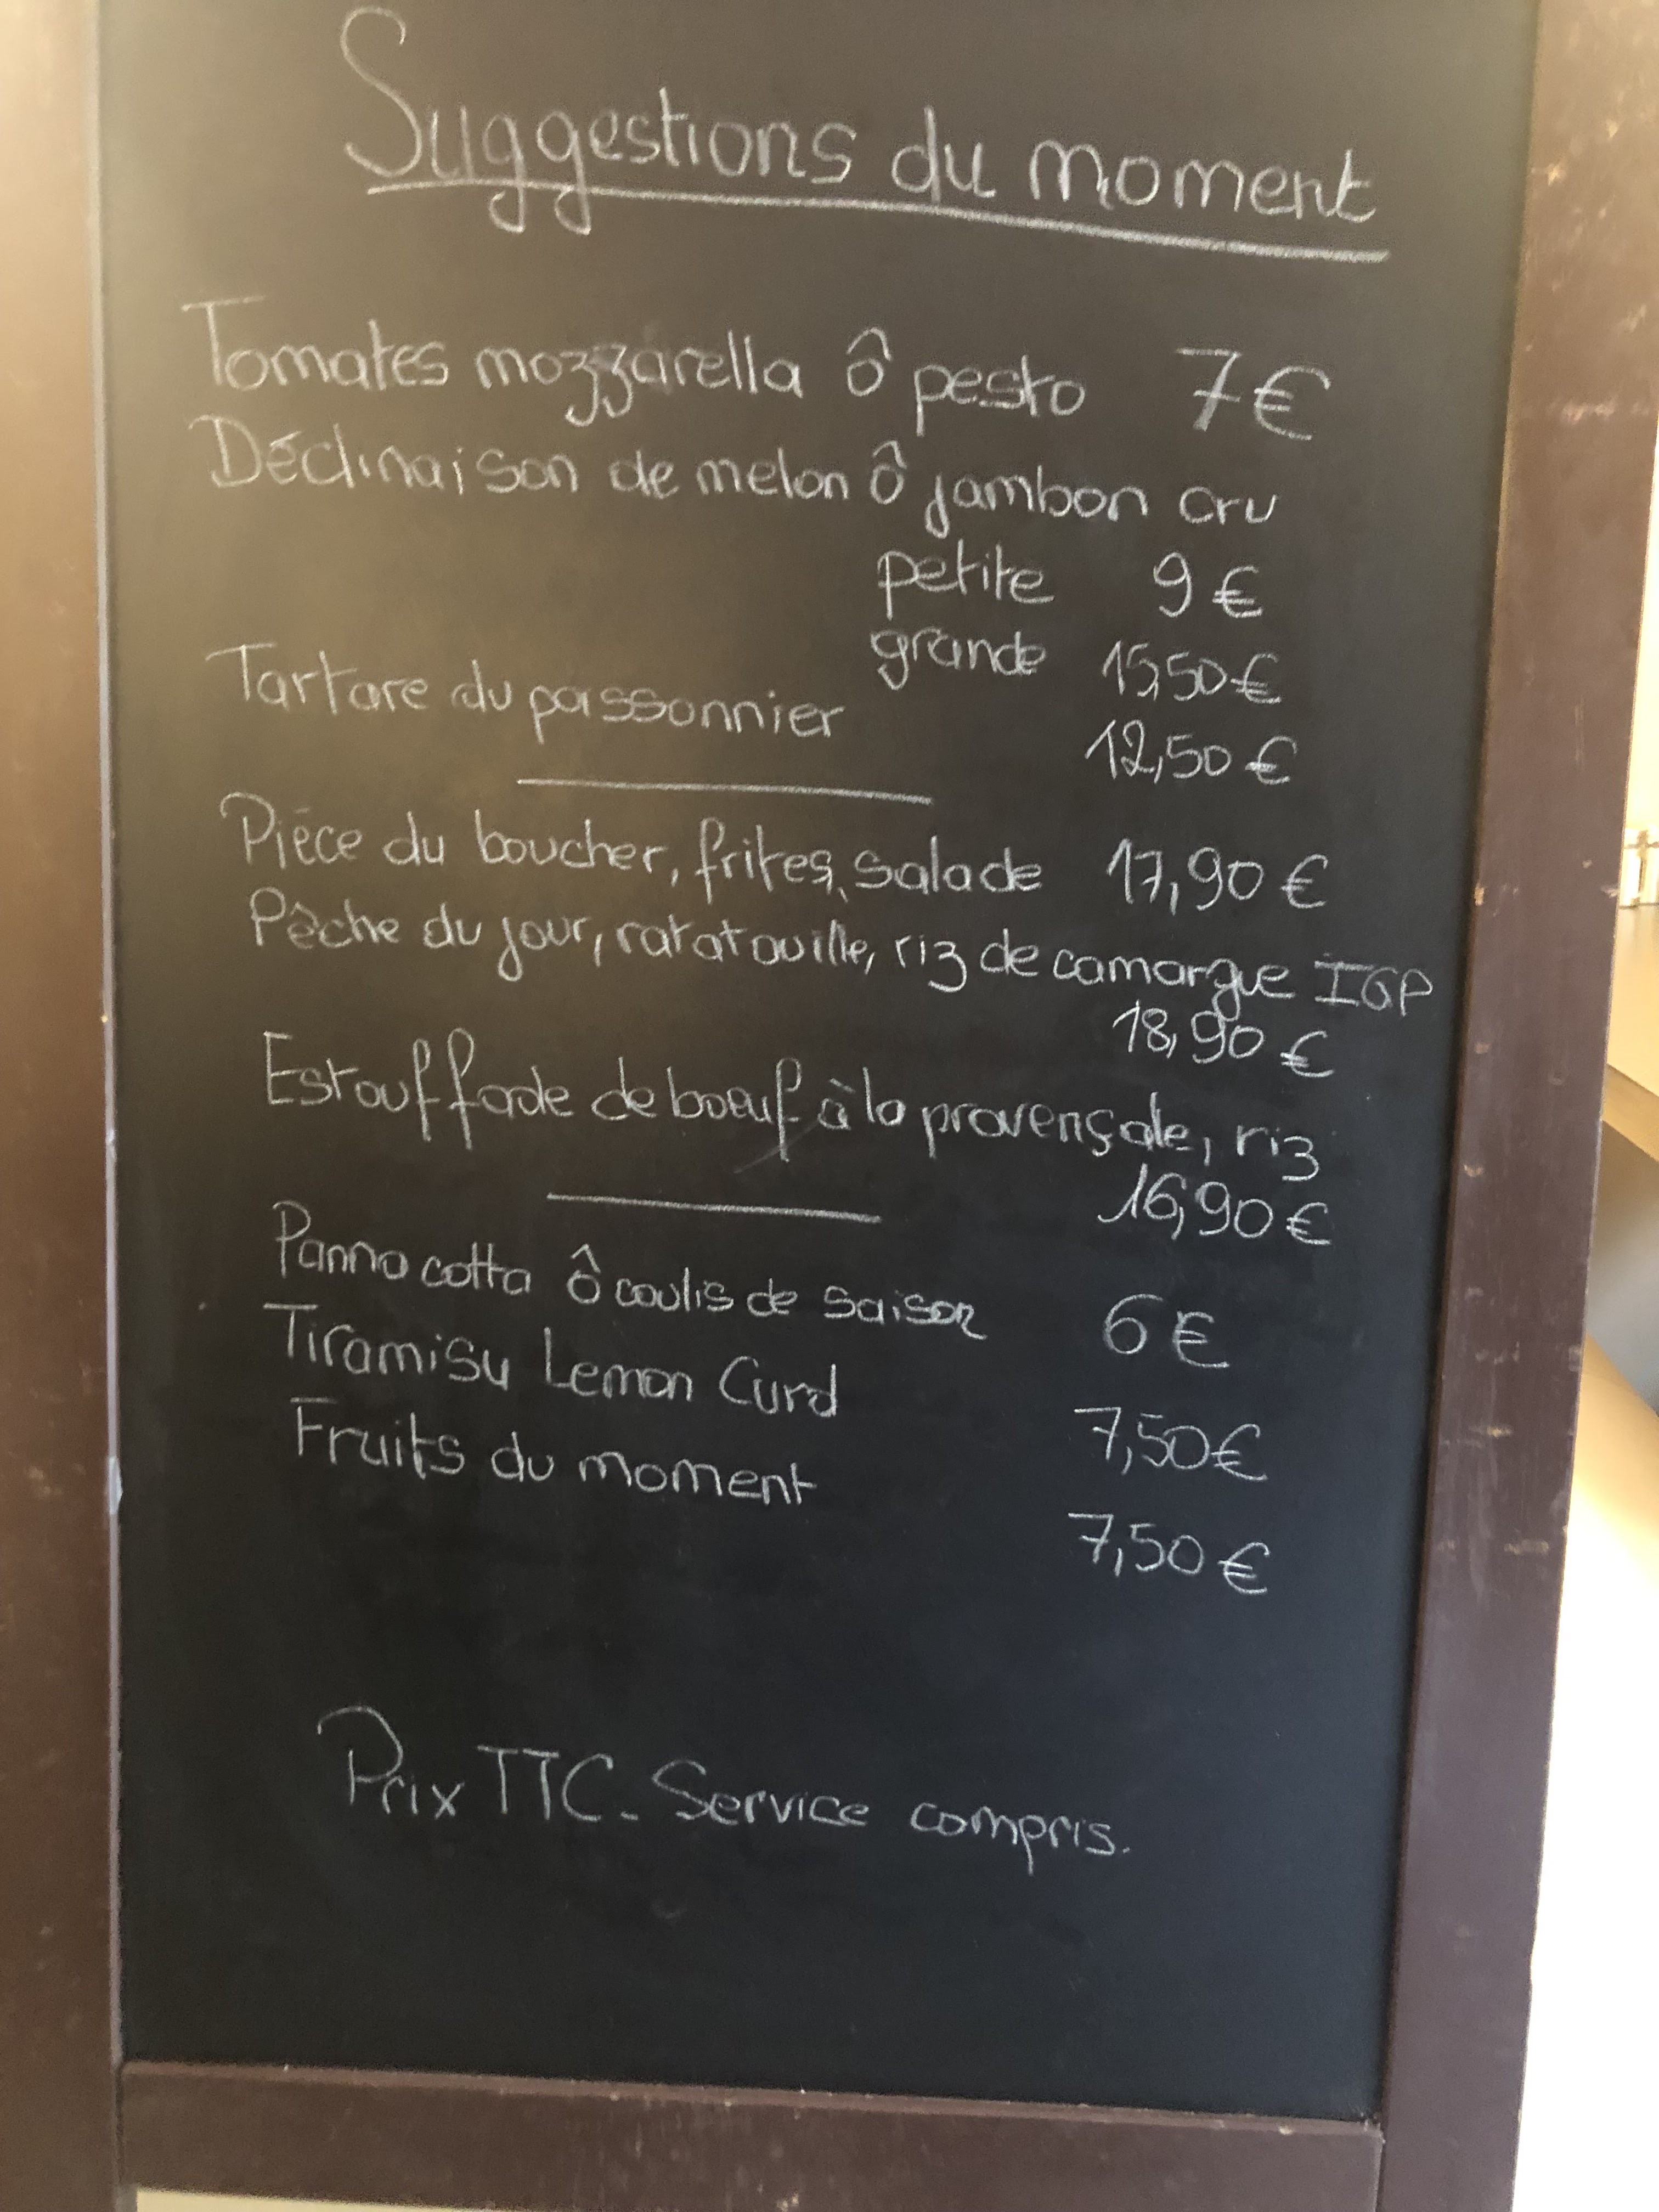 Suggestions du moment
Tomates mozzarella Ô pesto 7€
Déclinaison de melon Ô jambon cru
petite 9€
grande 15,50€
Tartare du poissonnier 12,50€
Pièce du boucher, frites, salade 17,90€
Pêche du jour, ratatouille, riz de camargue IGP
18,90€
Estouffade de boeuf à la provençale, riz
16,90€
Panna cotta Ô coulis de saison 6€
Tiramisu Lemon Curd 7,50€
Fruits du moment 7,50€
Prix TTC - Service compris.